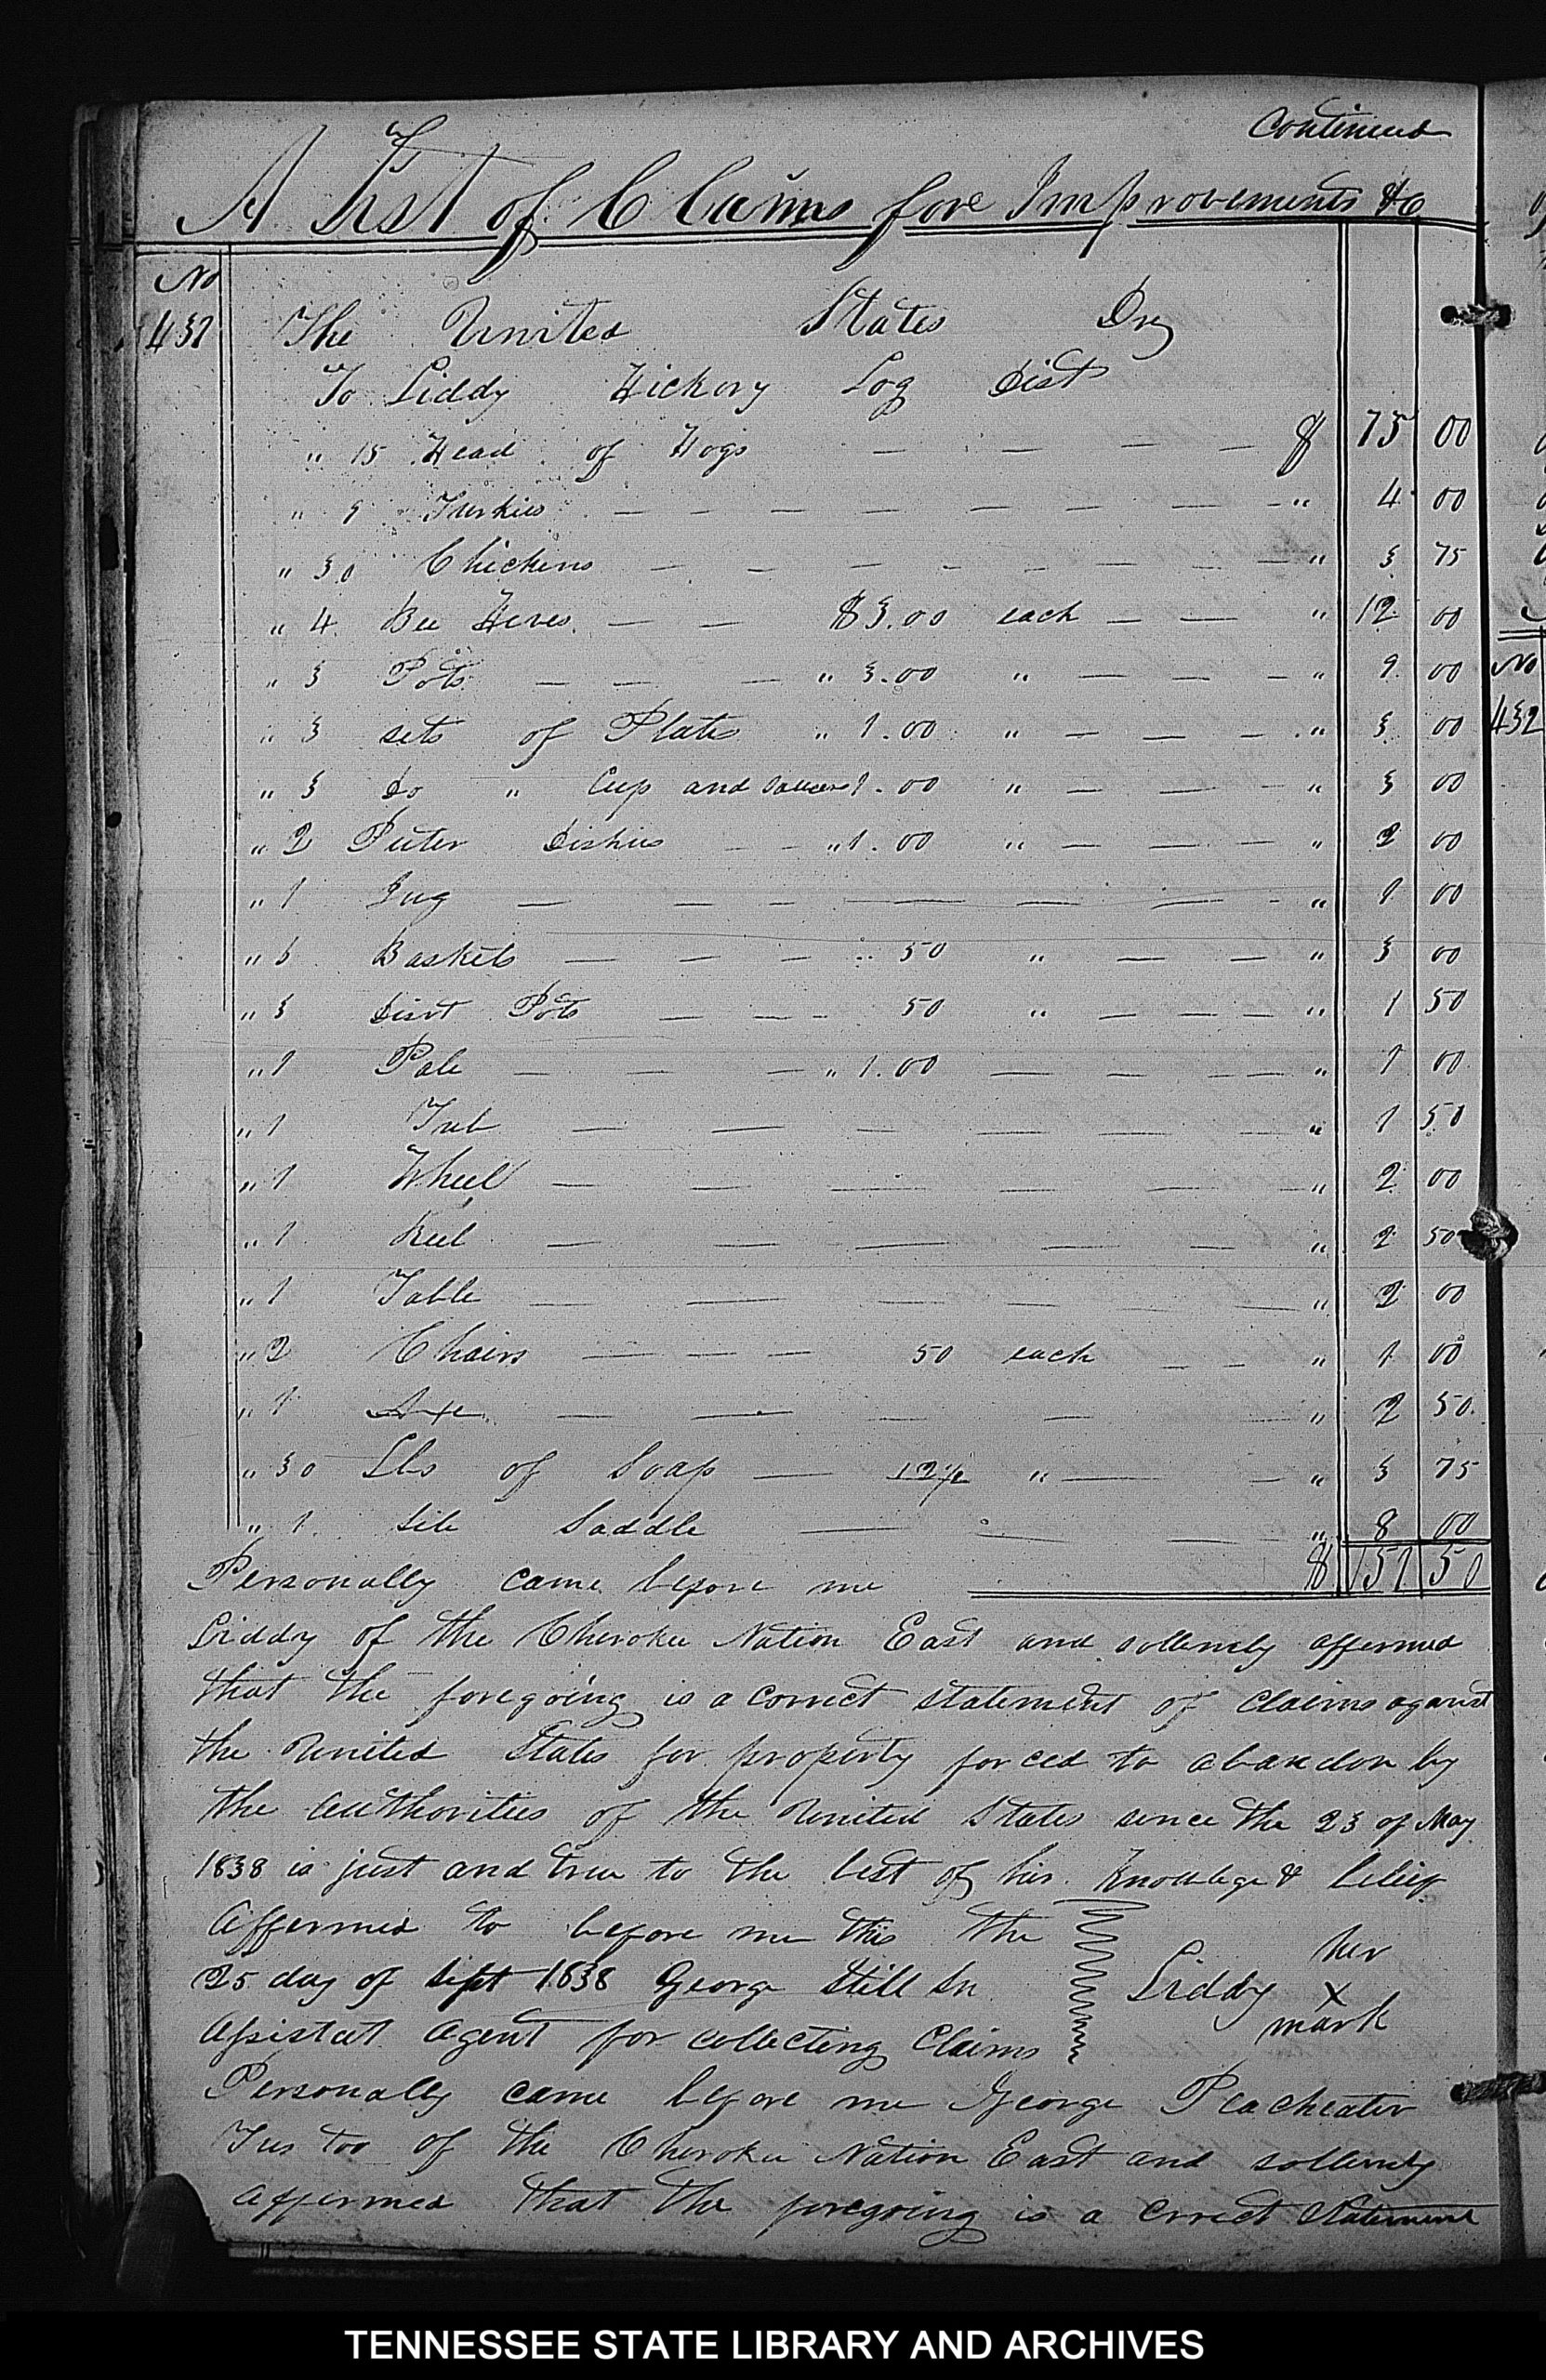 Continued
A List of Claims fore Improvements &C
No
431 The United States Dr
To Liddy Hickory Log Dist
" 15 Head of Hogs — — — — $ 75 00
" 9 Turkies — — — — — — — — " 4 00
" 30 Chickens — — — — — — — " 3 75
" 4 Bee Hives — — $3.00 each — — " 12 00
" 3 Pots — — — " 3.00 " — — — " 9 00
" 3 sets of Plates " 1.00 " — — — " 3 00
" 3 Do " Cup and Saucers 1.00 " — — — " 3 00
" 2 Puter Dishies — — " 1.00 " — — — " 2 00
" 1 Jug — — — — — — — " 1 00
" 6 Baskets — — — " 50 " — — — " 3 00
" 3 Dirt Pots — — — 50 " — — — " 1 50
" 1 Pale — — — " 1.00 — — — — " 1 00
" 1 Tub — — — — — — " 1 50
" 1 Wheel — — — — — — " 2 00
" 1 Reel — — — — — " 2 50
" 1 Table — — — — — — " 2 00
" 2 Chairs — — — 50 each — — " 1 00
" 1 Axe — — — — — " 2 50
" 30 Lbs of Soap — 12½ " — — " 3 75
" 1 Side Saddle — — — " 8 00
Personally came before me $ 151 50
Liddy of the Cherokee Nation East and sollemly affermed
that the foregoing is a correct statement of claims against
the United States for property forced to abandon by
the authorities of the United States sence the 23 of May
1838 is just and true to the best of his Knowledge & belief
Affermed to before me this the
25 day of Sept 1838 George Still Sn
Assistat Agent for collecting Claims
her
Liddy x
mark
Personally came before me George Peacheater
Jus too of the Cherokee Nation East and sollemly
affermed that the foregoing is a correct statement
No
432
TENNESSEE STATE LIBRARY AND ARCHIVES